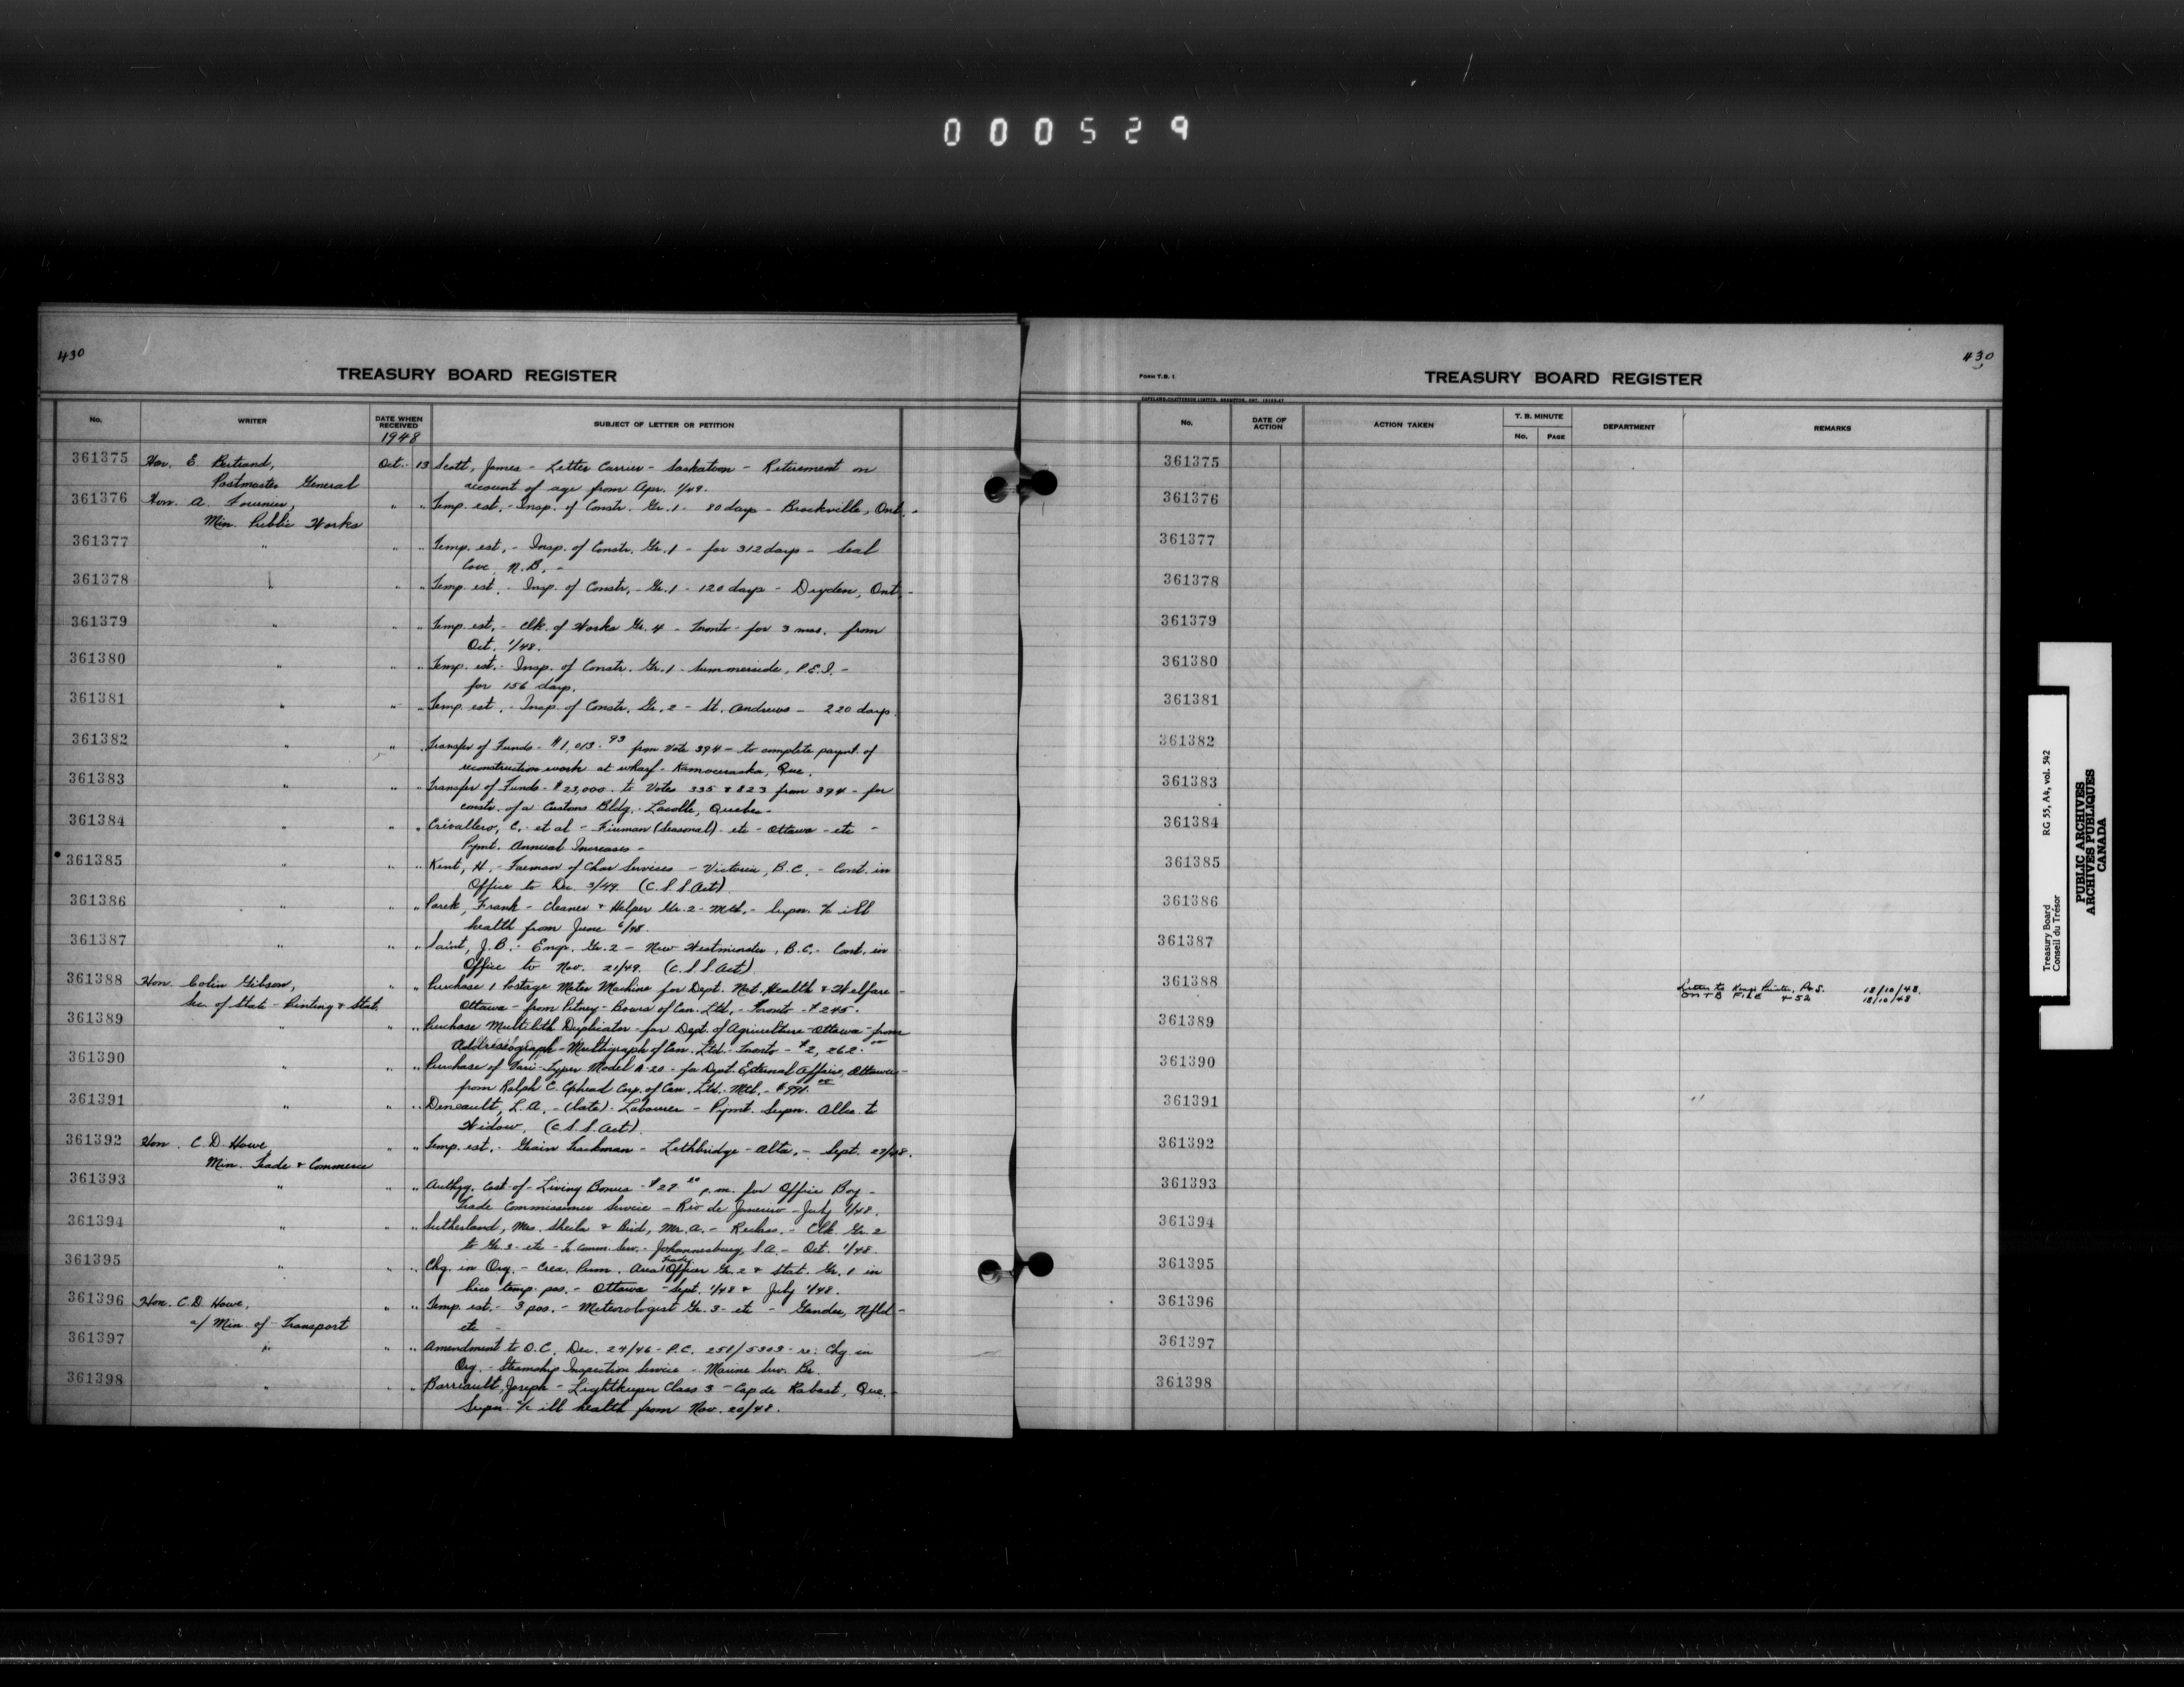 000529
430
TREASURY BOARD REGISTER
No. WRITER DATE WHEN RECEIVED SUBJECT OF LETTER OR PETITION
1948
361375 Hon. E. Bertrand, Oct. 13 Scott, James - Letter Carrier - Saskatoon - Retirement on
Postmaster General account of age from Apr. 1/49.
361376 Hon. A. Fournier, " " Temp. est. - Insp. of Constr. Gr. 1 - 80 days - Brockville, Ont. -
Min. Public Works
361377 " " " Temp. est. - Insp. of Constr. Gr. 1 - for 312 days - Seal
Cove N.B. -
361378 " " " Temp. est. - Insp. of Constr. - Gr. 1 - 120 days - Dryden, Ont. -
361379 " " " Temp. est. - Clk. of Works Gr. 4 - Toronto - for 3 mos. from
Oct. 1/48.
361380 " " " Temp. est. - Insp. of Constr. Gr. 1 - Summerside, P.E.I. -
for 156 days.
361381 " " " Temp. est. - Insp. of Constr. Gr. 2 - St. Andrews - 220 days.
361382 " " " Transfer of Funds - $1,013.93 from Vote 394 - to complete paymt. of
reconstruction work at wharf - Kamouraska, Que.
361383 " " " Transfer of Funds - $23,000. to Votes 335 & 823 from 394 - for
constr. of a Customs Bldg. - Lacolle, Quebec -
361384 " " " Crivallero, C. - et al - Fireman (Seasonal) - etc - Ottawa - etc -
Pymt. Annual Increases -
361385 " " " Kent, H. - Foreman of Char Services - Victoria, B.C. - Cont. in
Office to Dec. 3/49. (C.S.S. Act)
361386 " " " Frank - Cleaner & Helper Gr. 2 - Mtl. - Supn. a/c ill
health from June 6/48.
361387 " " " Saint, J.B. - Engr. Gr. 2 - New Westminster, B.C. - Cont. in
Office to Nov. 21/49. (C.S.S. Act)
361388 Hon. Colin Gibson, " " Purchase 1 Postage Meter Machine for Dept. Nat. Health & Welfare -
Sec. of State - Printing & Stat. Ottawa - from Pitney-Bowes of Can. Ltd. - Toronto - $245.
361389 " " " Purchase Multilith Duplicator - for Dept. of Agriculture - Ottawa - from
Addressograph-Multigraph of Can. Ltd. - Toronto - $2,262.00
361390 " " " Purchase of Vari-Typer Model A-20 - for Dept. External Affairs, Ottawa -
from Ralph C. Coxhead Corp. of Can. Ltd. - Mtl. -
361391 " " " Deneault, L.A. - (late) - Labourer - Pymt. Supn. Allce. to
Widow. (C.S.S. Act)
361392 Hon. C.D. Howe, " " Temp. est. - Grain Trackman - Lethbridge - Alta. - Sept. 27/48.
Min. Trade & Commerce
361393 " " " Authzg. Cost-of-Living Bonus - p.m. for Office Boy -
Trade Commissioner Service - Rio de Janeiro - July 1/48.
361394 " " " Sutherland, Mrs. Sheila & Bird, Mr. A. - Reclass. - Clk. Gr. 2
to Gr. 3 - etc - Tr. Comm. Serv. - Johannesburg, S.A. - Oct. 1/48.
361395 " " " Chg. in Org. - Crea. Perm. Area Trade Officer Gr. 2 & Stat. Gr. 1 in
lieu temp. pos. - Ottawa - Sept. 1/48 & July 1/48.
361396 Hon. C.D. Howe, " " Temp. est. - 3 pos. - Meteorologist Gr. 3 - etc - Gander, Nfld -
a/ Min. of Transport etc -
361397 " " " Amendment to O.C. Dec. 24/46 - P.C. 251/5303 - re: Chg. in
Org. - Steamship Inspection Service - Marine Serv. Br.
361398 " " " Barriault, Joseph - Lightkeeper Class 3 - Cap de Rabast, Que. -
Supn. a/c ill health from Nov. 20/48.
430
FORM T.B. 1
TREASURY BOARD REGISTER
No. DATE OF ACTION ACTION TAKEN T. B. MINUTE DEPARTMENT REMARKS
No. PAGE
361375
361376
361377
361378
361379
361380
361381
361382
361383
361384
361385
361386
361387
361388 Letter to Kings Printer, P&S. 18/10/48.
ON T B FILE 452 18/10/48
361389
361390
361391
361392
361393
361394
361395
361396
361397
361398
Treasury Board RG 55, A4, vol. 542
Conseil du Trésor
PUBLIC ARCHIVES
ARCHIVES PUBLIQUES
CANADA